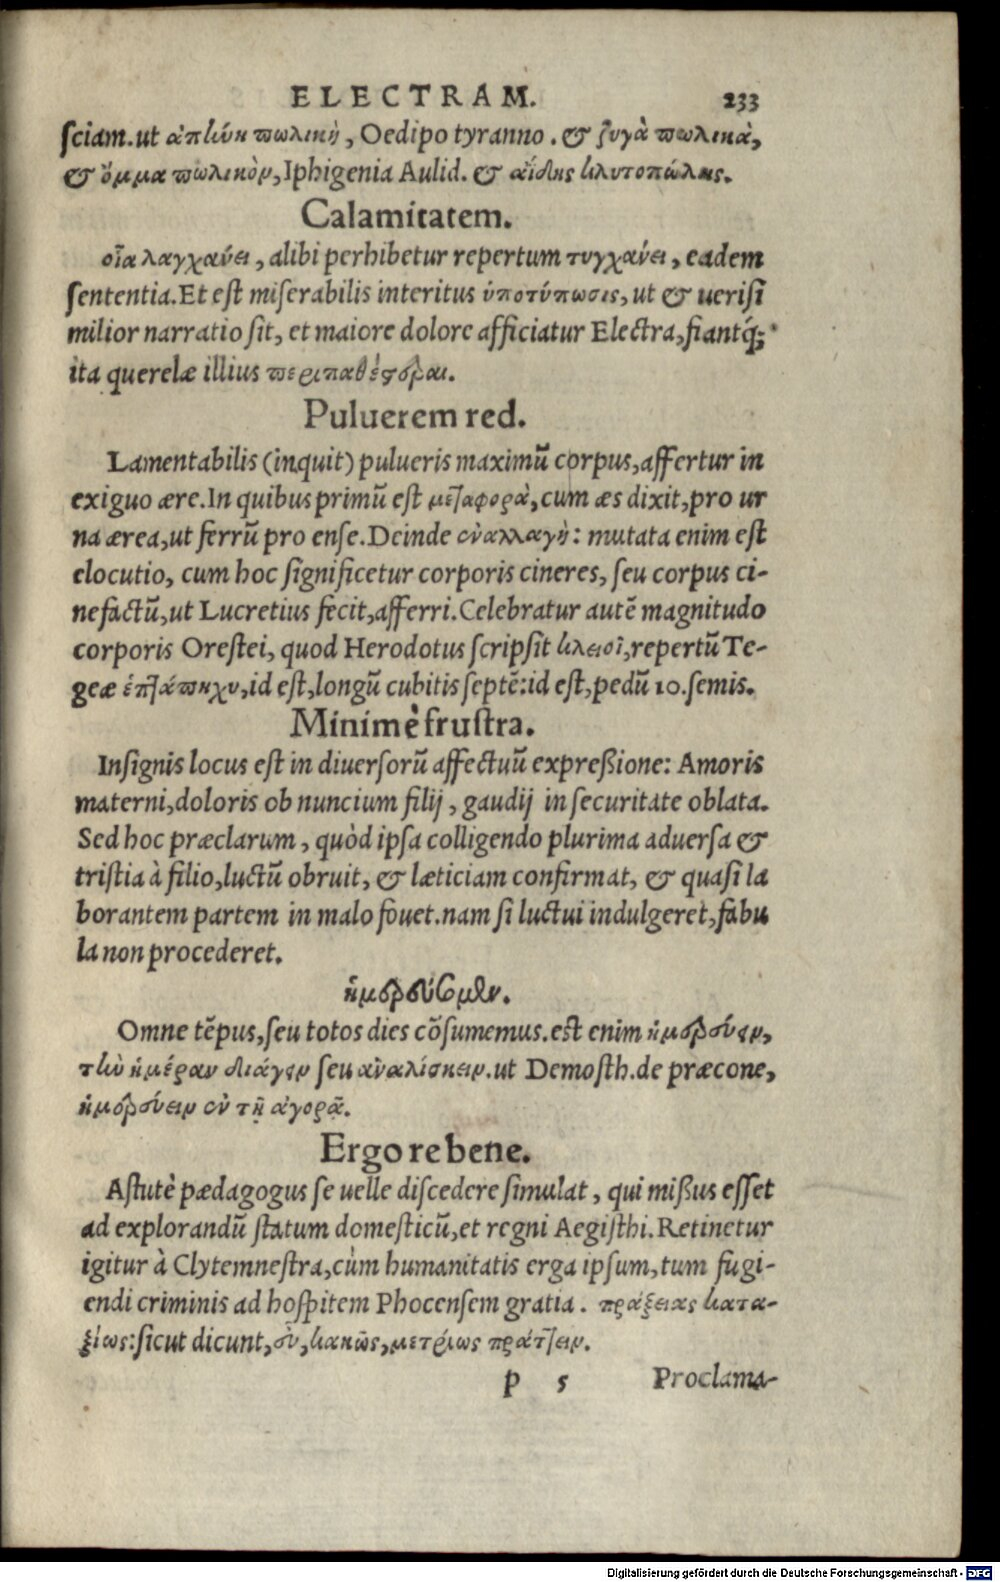 ELECTRAM. 233
sciam. ut ἀπήνη πωλικὴ, Oedipo tyranno. & ζυγὰ πωλικὰ,
& ὄμμα πωλικὸν, Iphigenia Aulid. & ἀΐδης κλυτοπώλης.
Calamitatem.
οἷα λαγχάνει, alibi perhibetur repertum τυγχάνει, eadem
sententia. Et est miserabilis interitus ὑποτύπωσις, ut & uerisi
milior narratio sit, et maiore dolore afficiatur Electra, fiantq́;
ita querelæ illius περιπαθέστεραι.
Puluerem red.
Lamentabilis (inquit) pulueris maximū corpus, affertur in
exiguo ære. In quibus primū est μεταφορὰ, cum æs dixit, pro ur
na ærea, ut ferrū pro ense. Deinde ἐναλλαγὴ: mutata enim est
elocutio, cum hoc significetur corporis cineres, seu corpus ci-
nefactū, ut Lucretius fecit, afferri. Celebratur autē magnitudo
corporis Orestei, quod Herodotus scripsit κλειοῖ, repertū Te-
geæ ἑπτάπηχυ, id est, longū cubitis septē: id est, pedū 10. semis.
Minimè frustra.
Insignis locus est in diuersorū affectuū expreßione: Amoris
materni, doloris ob nuncium filij, gaudij in securitate oblata.
Sed hoc præclarum, quòd ipsa colligendo plurima aduersa &
tristia à filio, luctū obruit, & læticiam confirmat, & quasi la
borantem partem in malo fouet. nam si luctui indulgeret, fabu
la non procederet.
ἡμερεύσομεν.
Omne tēpus, seu totos dies cōsumemus. est enim ἡμερεύειν,
τὴν ἡμέραν διάγειν seu ἀναλίσκειν. ut Demosth. de præcone,
ἡμερεύειν ἐν τῇ ἀγορᾷ.
Ergo re bene.
Astutè pædagogus se uelle discedere simulat, qui mißus esset
ad explorandū statum domesticū, et regni Aegisthi. Retinetur
igitur à Clytemnestra, cùm humanitatis erga ipsum, tum fugi-
endi criminis ad hospitem Phocensem gratia. πράξειας κατα-
ξίως: sicut dicunt, εὖ, κακῶς, μετρίως πράττειν.
p 5 Proclama-
Digitalisierung gefördert durch die Deutsche Forschungsgemeinschaft - DFG